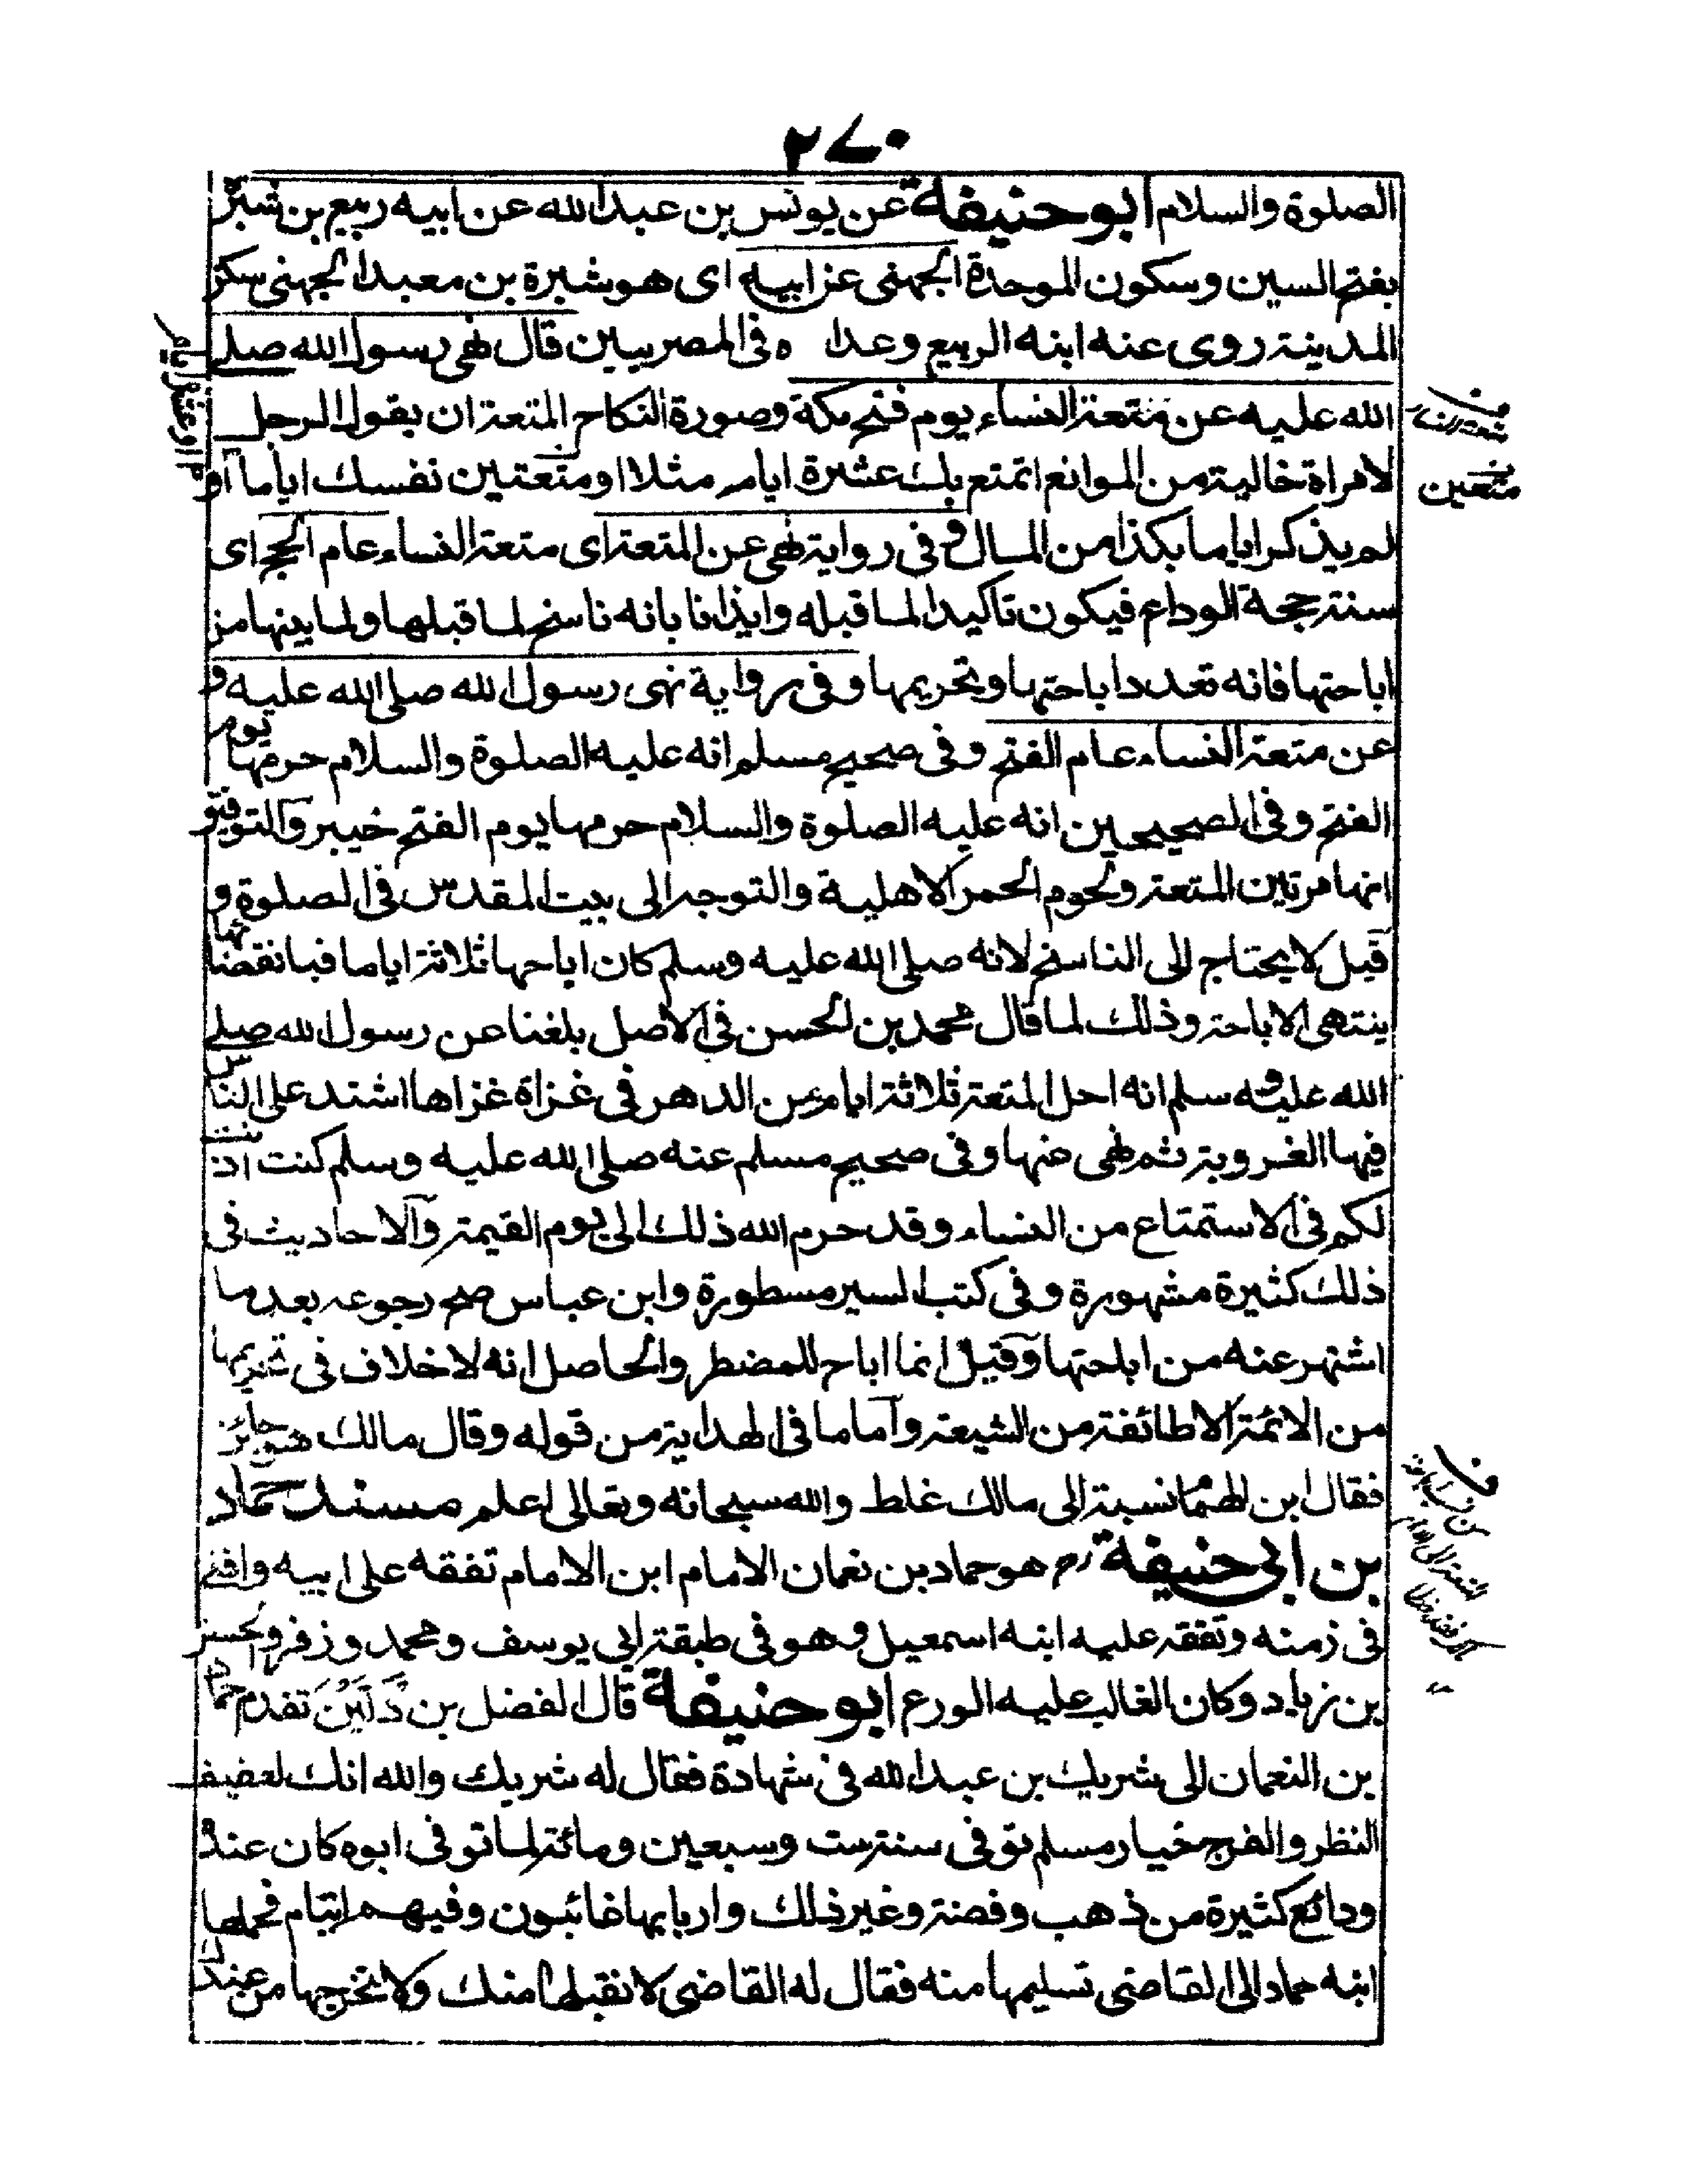 ٢٧٠
الصلوة والسلام ابو حنيفة عن يونس بن عبد الله عن ابيه ربيع بن سبرة
بفتح السين وسكون الموحدة الجهنى عن ابيه اى هو سبرة بن معبد الجهنى سكن
المدينة روى عنه ابنه الربيع وعداده فى المصريين قال نهى رسول الله صلى
الله عليه عن متعة النساء يوم فتح مكة وصورة النكاح المتعة ان يقول الرجل
لامراة خالية من الموانع اتمتع بك عشرة ايام مثلا او متعتين نفسك اياما او
لم يذكر اياما بكذا من المال وفى رواية نهى عن المتعة اى متعة النساء عام الحج اى
سنة حجة الوداع فيكون تاكيدا لما قبله وايذانا بانه ناسخ لما قبلها ولما بينها من
اباحتها فانه تعدد اباحتها وتحريمها وفى رواية نهى رسول الله صلى الله عليه و
عن متعة النساء عام الفتح وفى صحيح مسلم انه عليه الصلوة والسلام حرمها يوم
الفتح وفى الصحيحين انه عليه الصلوة والسلام حرمها يوم الفتح خيبر والتوفيق
انها مرتين المتعة ولحوم الحمر الاهلية والتوجه الى بيت المقدس فى الصلوة و
قيل لا يحتاج الى الناسخ لانه صلى الله عليه وسلم كان اباحها ثلاثة اياما فبانقضائها
ينتهى الاباحة وذلك لما قال محمد بن الحسن فى الاصل بلغنا عن رسول الله صلى
الله عليه وسلم انه احل المتعة ثلاثة ايام من الدهر فى غزاة غزاها اشتد على الناس
فيها الغروبة ثم نهى عنها وفى صحيح مسلم عنه صلى الله عليه وسلم كنت اذنت
لكم فى الاستمتاع من النساء وقد حرم الله ذلك الى يوم القيمة والاحاديث فى
ذلك كثيرة مشهورة وفى كتب السير مسطورة وابن عباس صح رجوعه بعد ما
اشتهر عنه من اباحتها وقيل انما اباح للمضطر والحاصل انه لا خلاف فى تحريمها
من الائمة الا طائفة من الشيعة واما ما فى الهداية من قوله وقال مالك هو جائز
فقال ابن الهمام نسبته الى مالك غلط والله سبحانه وتعالى اعلم مسند حماد
بن ابى حنيفة رح هو حماد بن نعمان الامام ابن الامام تفقه على ابيه وافتى
فى زمنه وتفقه عليه ابنه اسمعيل وهو فى طبقة ابى يوسف ومحمد وزفر والحسن
بن زياد وكان الغالب عليه الورع ابو حنيفة قال الفضل بن دكين تقدم حماد
بن النعمان الى شريك بن عبد الله فى شهادة فقال له شريك والله انك لعفيف
النظر والفرج خيار مسلم توفى سنة ست وسبعين ومائة لما توفى ابوه كان عنده
ودائع كثيرة من ذهب وفضة وغير ذلك واربابها غائبون وفيهم ايتام فحملها
ابنه حماد الى القاضى تسليمها منه فقال له القاضى لا نقبلها منك ولا نخرجها من عندك
متعة النساء
متعين